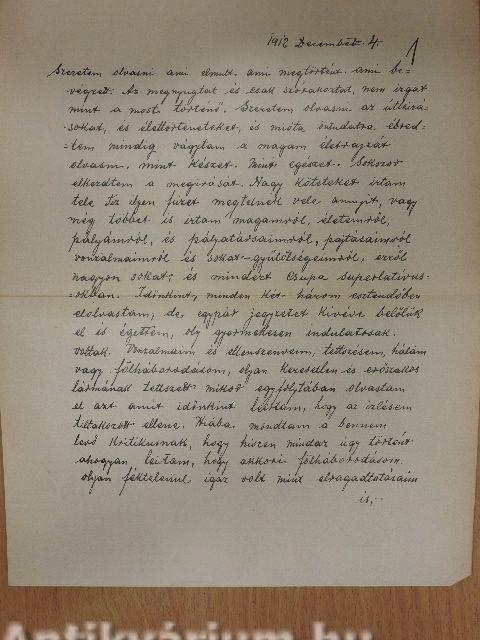 1912 December. 4.
1
Szeretem olvasni ami elmult. ami megtörtént. ami be-
végzett. Az megnyugtat és csak szórakoztat, nem izgat
mint a most történő. Szeretem olvasni az útleirá-
sokat, és élettörténeteket, és mióta öntudatra ébred-
=tem mindig vágytam a magam életrajzát
olvasni. mint készet. Mint egészet. Sokszor
elkezdtem a megirását. Nagy köteteket irtam
tele Tiz ilyen füzet megtelnék vele annyit, vagy
még többet is irtam magamról, életemről,
pályámról, és pályatársaimról, pajtásaimról
vonzalmaimról és sokat-gyűlölségeimről, erről
nagyon sokat; és mindezt csupa superlativus-
=okban. Időnkint, minden két-három esztendőben
elolvastam, de, egypár jegyzetet kivéve belőlük
el is égettem, oly gyermekesen indulatosak.
voltak. Vonzalmaim és ellenszenveim, tetszésem, hálám
vagy fölháborodásom, olyan keresetlen és erőszakos
lármának tetszett mikor egyfolytában olvastam
el azt amit időnkint leirtam, hogy az izlésem
tiltakozott ellene. Hiába mondtam a bennem
levő kritikusnak, hogy hiszen mindaz úgy történt
ahogyan leirtam, hogy akkori fölháborodásom.
olyan féktelenül igaz volt mint elragadtatásaim
is,-
Antikvárium.hu